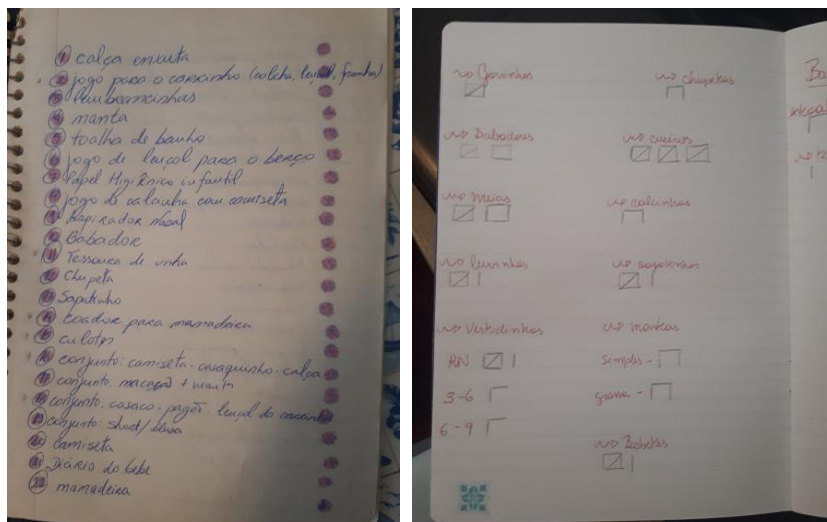 1 calça enxuta
2 jogo para o carrinho (colcha, lençol, fronha)
3 lembrancinhas
4 manta
5 toalha de banho
6 jogo de lençol para o berço
7 Papel Higiênico infantil
8 jogo de calcinha com camiseta
9 Aspirador nasal
10 Babador
11 Tessoura de unha
12 Chupeta
13 Sapatinho
14 coador para mamadeira
15 culotes
16 conjunto: camiseta - casaquinho - calça
17 conjunto: macacão + manta
18 conjunto: casaco - pagão - lençol do carrinho
19 conjunto: short/blusa
20 camiseta
21 Diário do bebe
22 mamadeira
chupetas
Babadores
cueiros
meias
calcinhas
luvinhas
sapatinhos
Vestidinhos
mantas
RN
simples -
3-6
grossa -
6-9